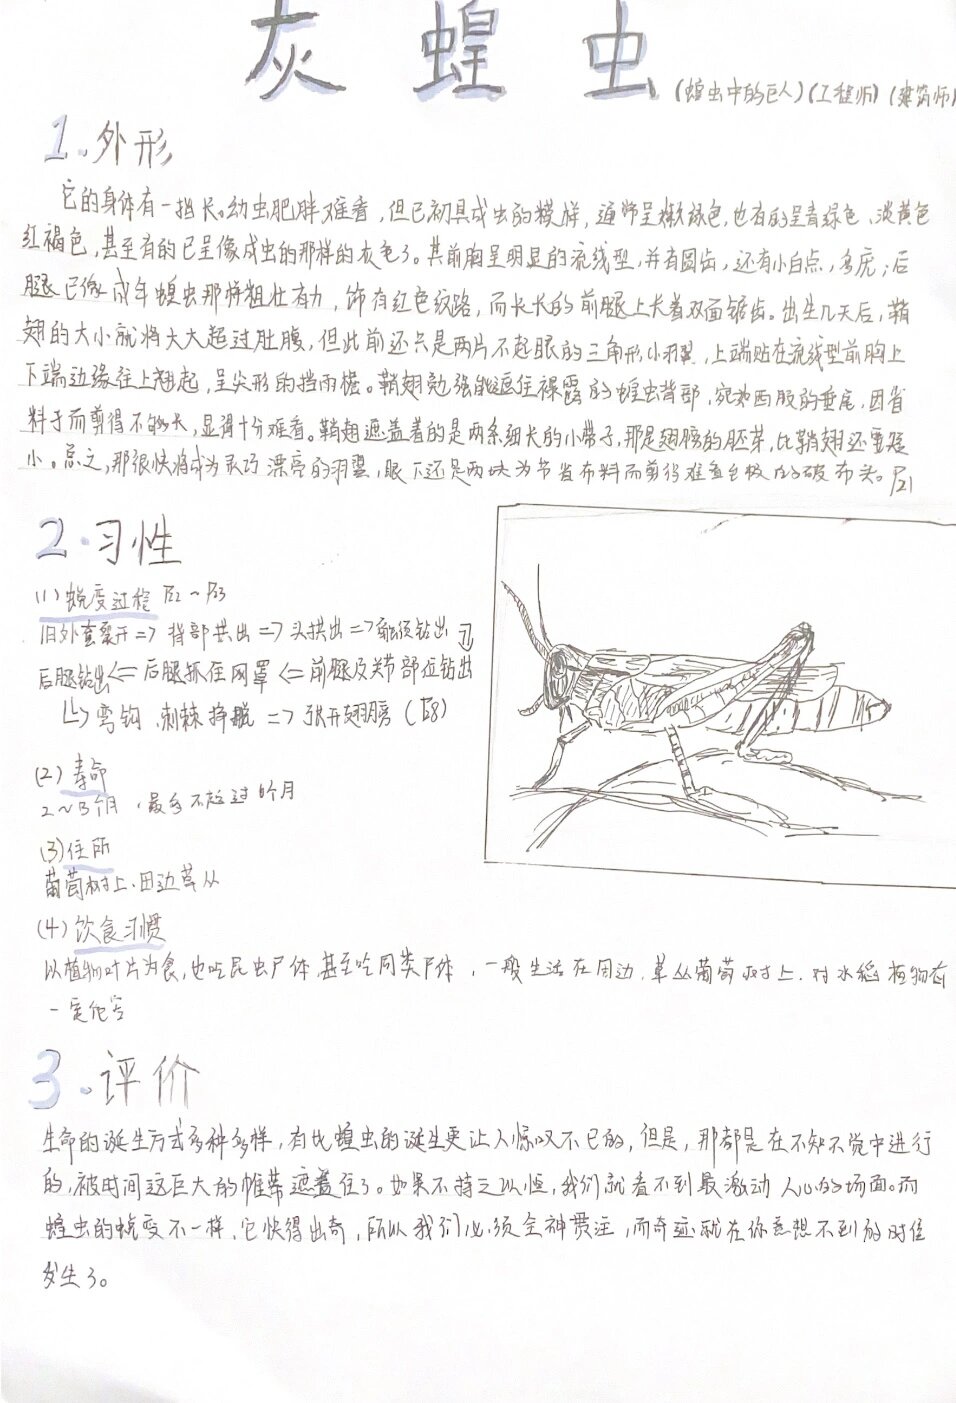 灰蝗虫
(蝗虫中的巨人)(工程师)(建筑师)
1.外形
它的身体有一指长。幼虫肥胖难看，但已初具成虫的模样，通常呈嫩绿色，也有的呈青绿色、淡黄色
红褐色，甚至有的已呈像成虫的那样的灰色了。其前胸呈明显的流线型，并有圆齿，还有小白点，多疣；后
腿已像成年蝗虫那样粗壮有力，饰有红色纹路，而长长的前腿上长着双面锯齿。出生几天后，鞘
翅的大小就将大大超过肚腹，但此前还只是两片不起眼的三角形小羽翼，上端贴在流线型前胸上
下端边缘往上翘起，呈尖形的挡雨檐。鞘翅勉强能遮住裸露的蝗虫背部，宛如西服的垂尾，因省
料子而剪得不够长，显得十分难看。鞘翅遮盖着的是两条细长的小带子，那是翅膀的胚芽，比鞘翅还要短
小。总之，那很快将成为灵巧漂亮的羽翼，眼下还是两块为节省布料而剪得难看至极的破布头。P21
2.习性
(1)蜕变过程 P22～P23
旧外套裂开=>背部拱出=>头拱出=>钻出
后腿钻出<=后腿抓住网罩<=前腿及关节部位钻出
弯钩、刺棘挣脱=>张开翅膀
(2)寿命
2～3个月，最多不超过6个月
(3)住所
葡萄树上、田边草丛
(4)饮食习惯
以植物叶片为食，也吃昆虫尸体甚至吃同类尸体，一般生活在田边、草丛葡萄树上，对水稻植物有
一定危害
3.评价
生命的诞生方式多种多样，有比蝗虫的诞生更让人惊叹不已的，但是，那都是在不知不觉中进行
的，被时间这巨大的帷幕遮盖住了。如果不持之以恒，我们就看不到最激动人心的场面。而
蝗虫的蜕变不一样，它快得出奇，所以我们必须全神贯注，而奇迹就在你意想不到的时候
发生了。